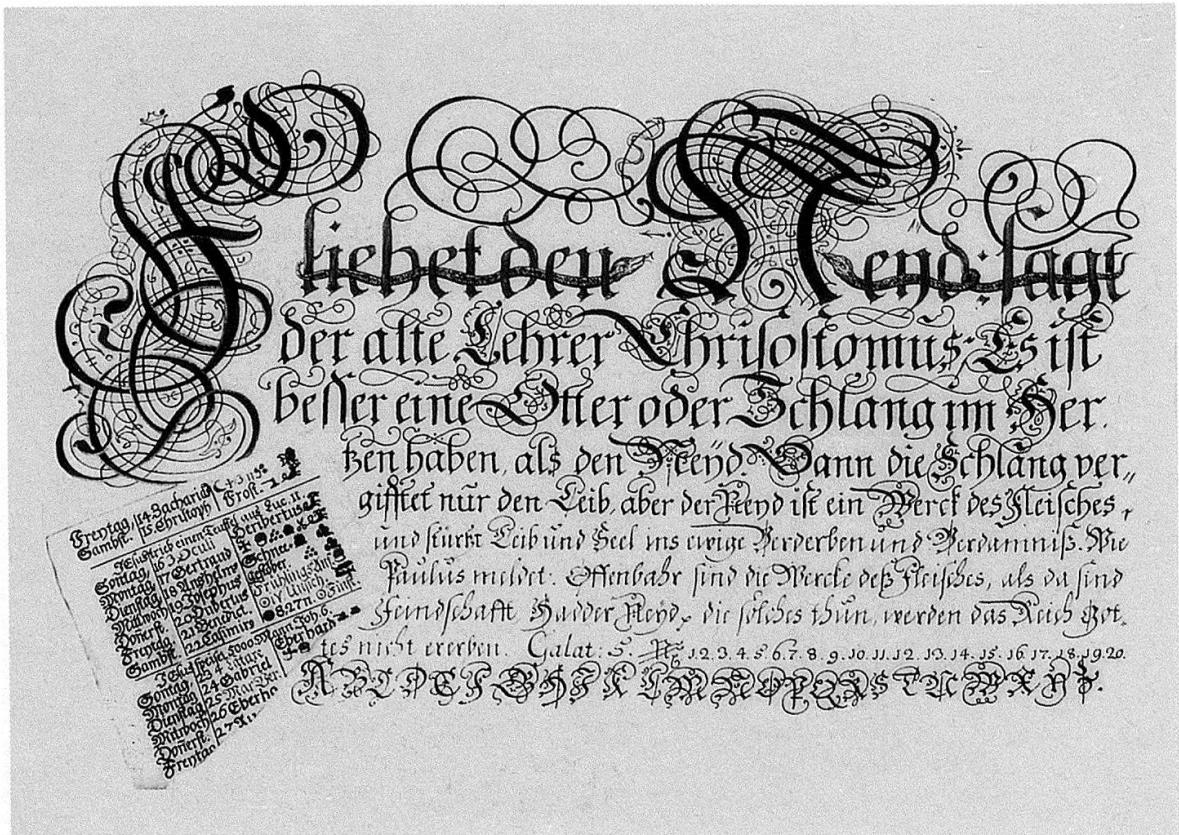 Fliehet den Neyd: sagt
der alte Lehrer Chrisostomus: Es ist
besser eine Otter oder Schlang im Her-
tzen haben, als den Neyd. Dann die Schlang ver„
gifftet nur den Leib, aber der Neyd ist ein Werck des Fleisches,
und stürtzt Leib und Seel ins ewige Verderben und Verdamniß. Wie
Paulus meldet: Offenbahr sind die Wercke deß Fleisches, als da sind
Feindschafft Hadder Neyd, die solches thun, werden das Reich Got-
tes nicht ererben. Galat: 5. 1. 2. 3. 4. 5. 6. 7. 8. 9. 10. 11. 12. 13. 14. 15. 16. 17. 18. 19. 20.
A B C D E F G H I K L M N O P Q R S T U W X Y Z.
Freytag 14 Zacharias
Sambst. 15 Christoph Frost.
JEsus trieb einen Teuffel aus Luc. 11.
Sontag, 16 3 Oculi Heribertus
Montag, 17 Gertraud
Dienstag 18 Anshelm Schnee
Mittwoch 19 Josephus
Donerst. 20 Hubertus Frühlings
Freytag, 21 Benedict.
Sambst. 22 Casimirs
JEsus speiset 5000 Mann, Joh. 6.
Sontag, 23 4 Lætare Eberhard
Montag, 24 Gabriel
Dienstag 25 Mar. Ver.
Mittwoch 26 Eberha
Donerst. 27
Freytag